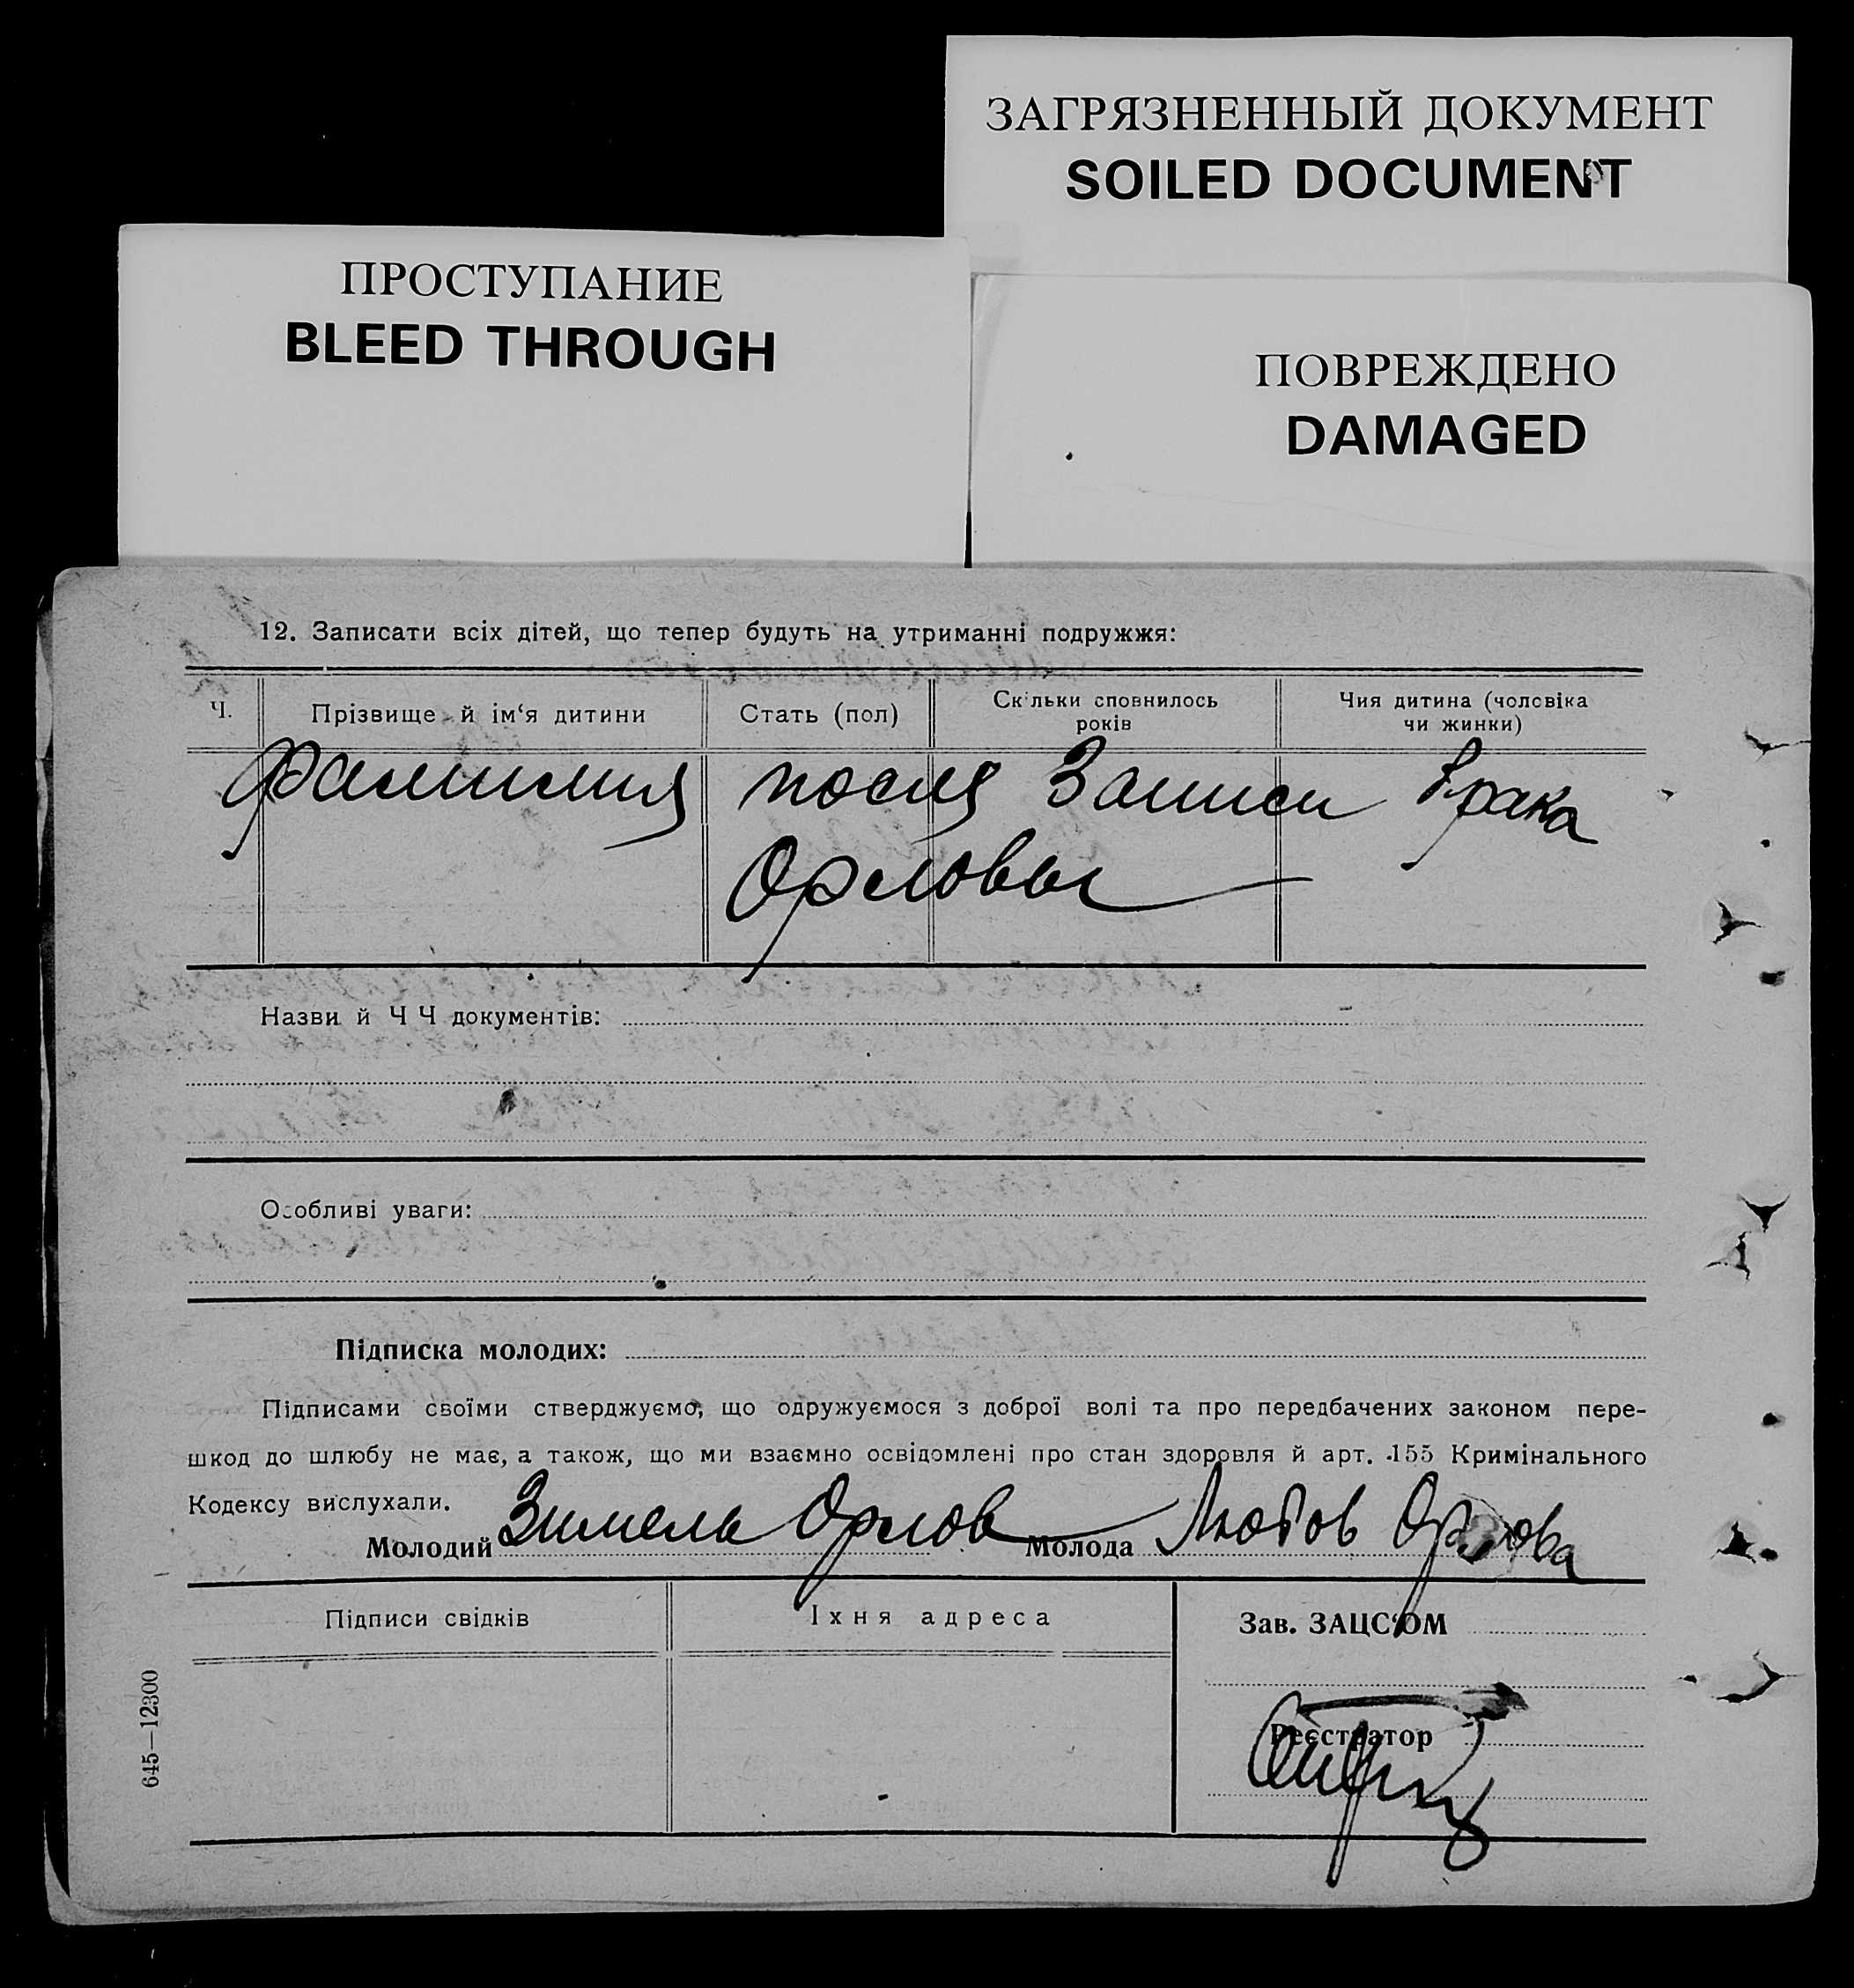 ЗАГРЯЗНЕННЫЙ ДОКУМЕНТ
SOILED DOCUMENT
ПРОСТУПАНИЕ
BLEED THROUGH
ПОВРЕЖДЕНО
DAMAGED
12. Записати всіх дітей, що тепер будуть на утриманні подружжя:
Ч.
Прізвище й ім‘я дитини
Стать (пол)
Скільки сповнилось
років
Чия дитина (чоловіка
чи жинки)
Фамилия после Записи брака
Орловы
Назви й Ч Ч документів:
Особливі уваги:
Підписка молодих:
Підписами своїми стверджуємо, що одружуємося з доброї волі та про передбачених законом пере-
шкод до шлюбу не має, а також, що ми взаємно освідомлені про стан здоровля й арт. 155 Кримінального
Кодексу вислухали.
Молодий Зимель Орлов Молода Любов Орлова
Підписи свідків
Їхня адреса
Зав. ЗАЦС‘ОМ
Реєстратор
645—12300